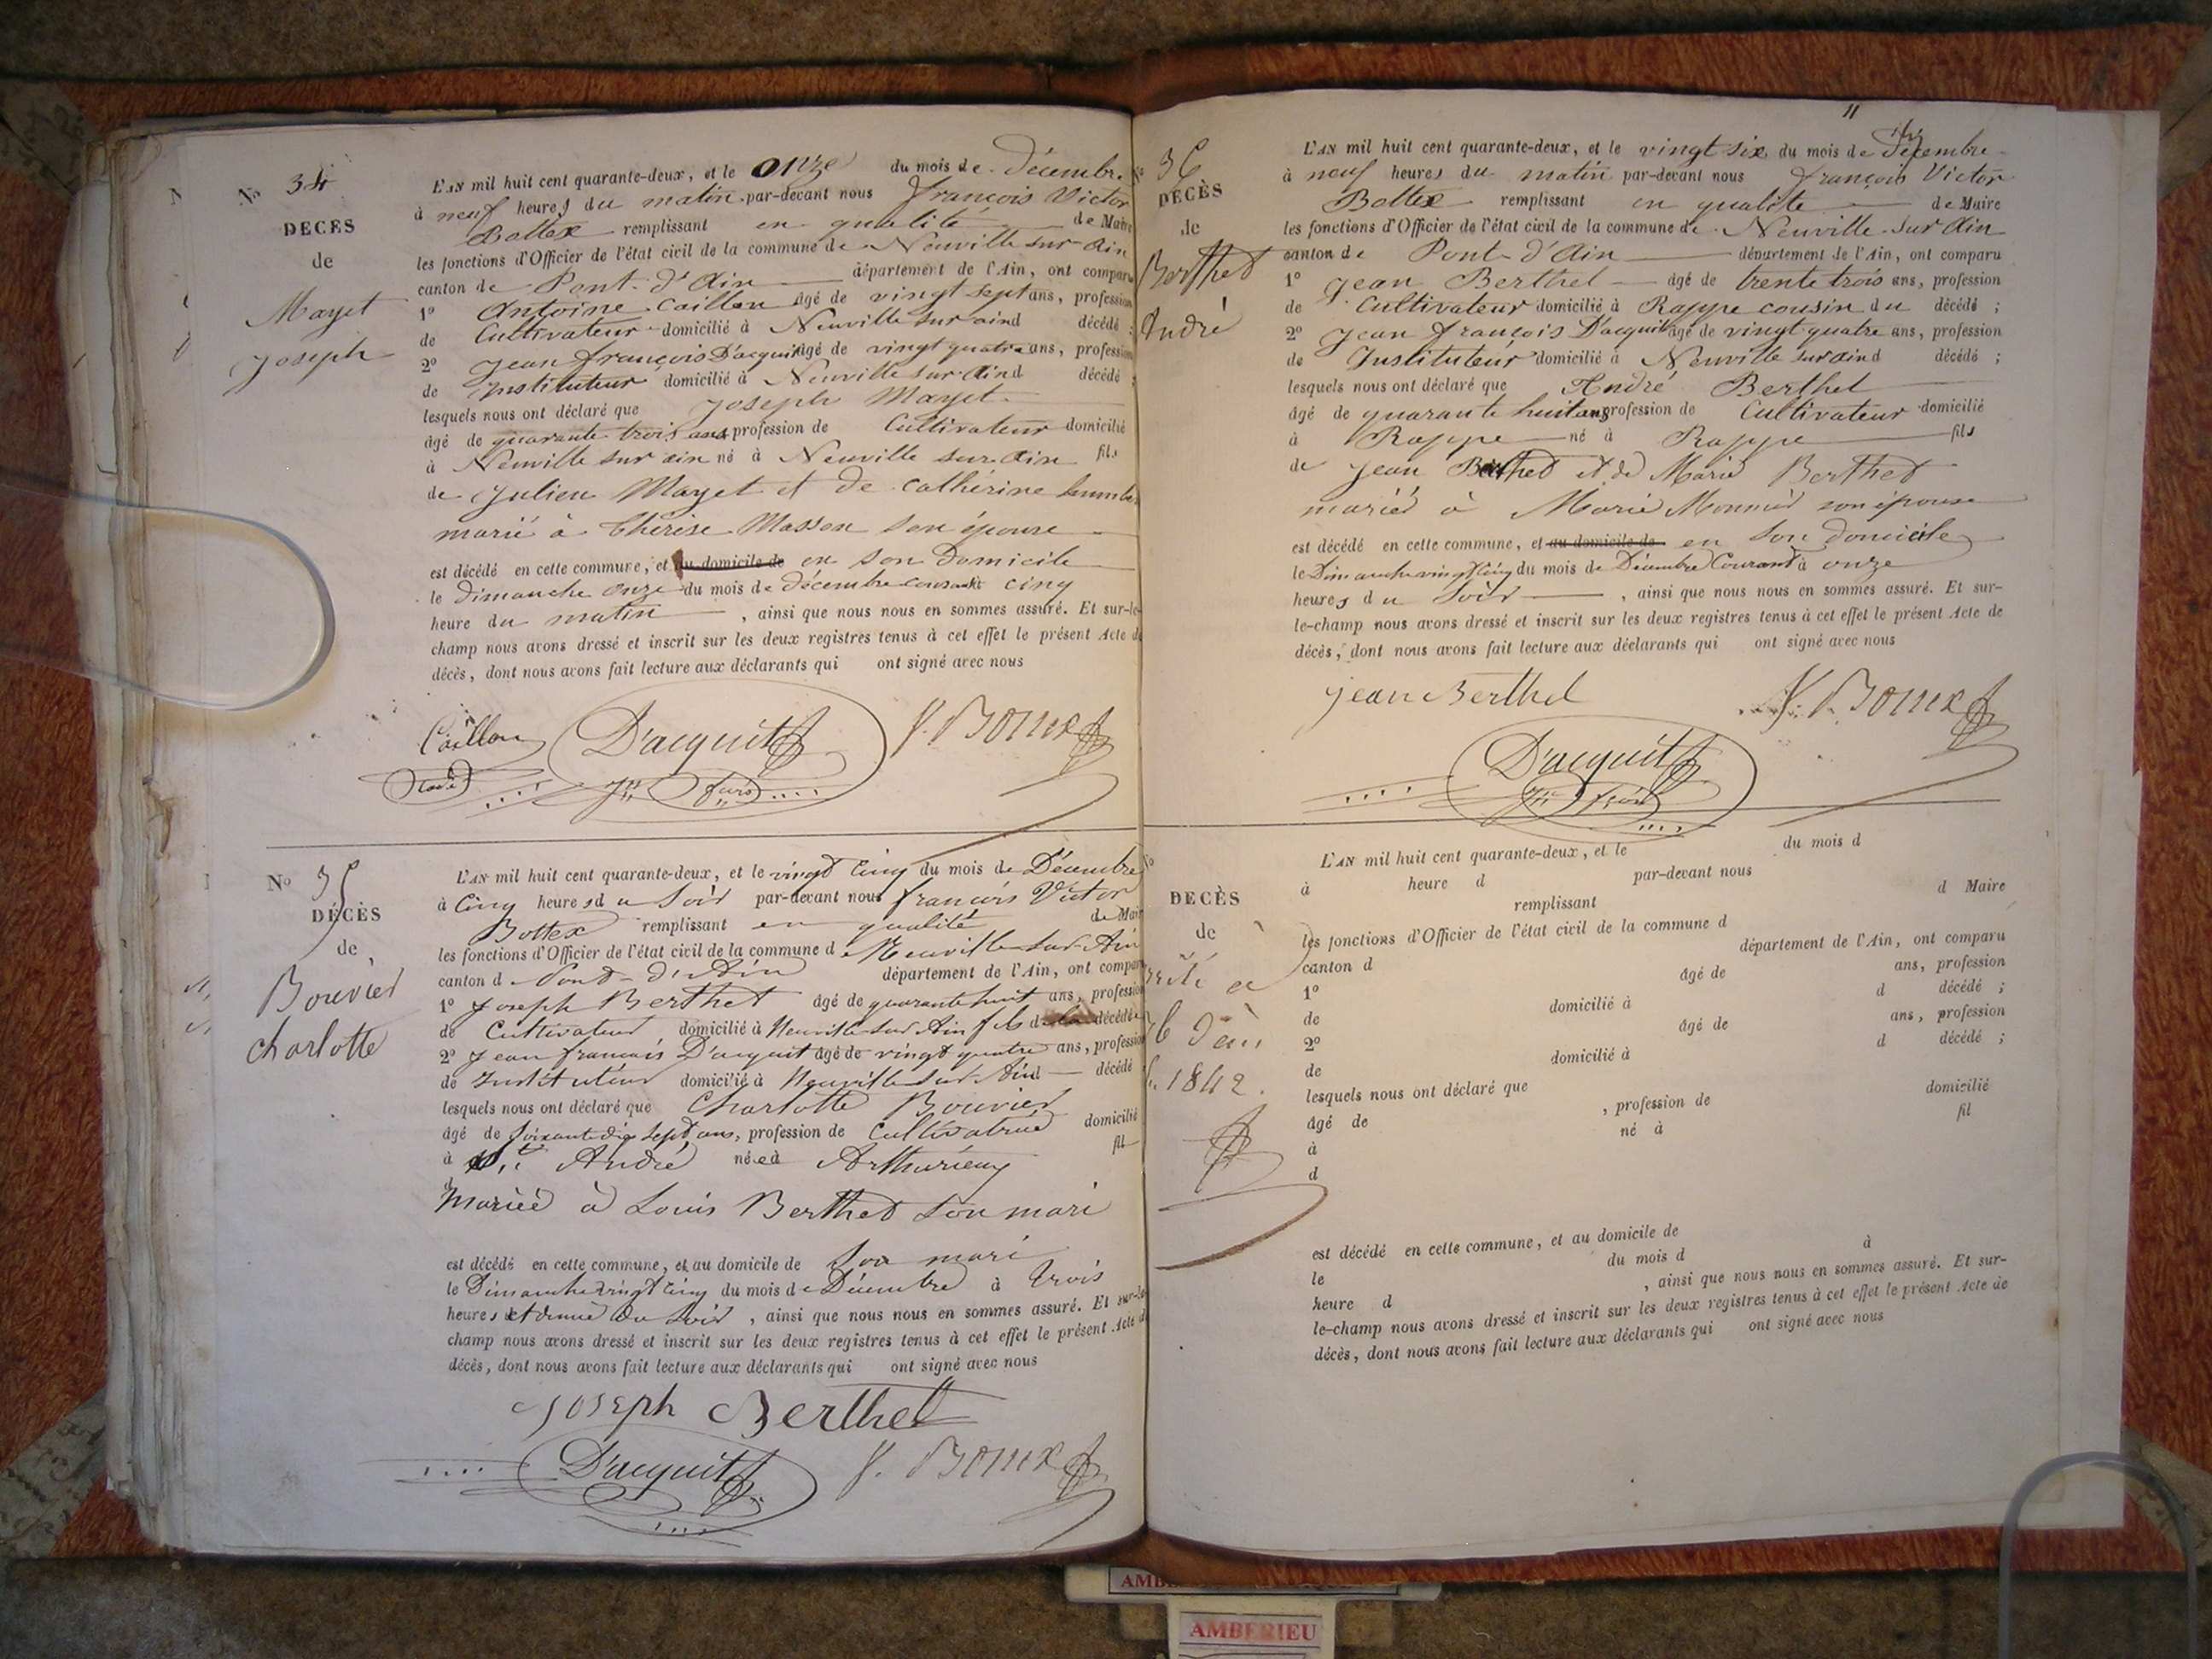 No 34
DECES
de
Mayet
Joseph
L'AN mil huit cent quarante-deux, et le onze du mois de décembre
à neuf heures du matin par-devant nous françois Victor
Bottex remplissant en qualité de Maire
les fonctions d'Officier de l'état civil de la commune de Neuville sur Ain
canton de Pont-d'Ain département de l'Ain, ont comparu
1° Antoine Caillon âgé de vingt sept ans, profession
de Cultivateur domicilié à Neuville sur ain d décédé ;
2° Jean françois D'acquit âgé de vingt quatre ans, profession
de Instituteur domicilié à Neuville sur Ain d décédé ;
lesquels nous ont déclaré que Joseph Mayet
âgé de quarante trois ans profession de Cultivateur domicilié
à Neuville sur ain né à Neuville sur Ain fils
de Julien Mayet et de Cathérine
marié à Thérèse Masson son épouse
est décédé en cette commune, et au domicile de en son Domicile
le dimanche onze du mois de décembre courant à cinq
heure du matin , ainsi que nous nous en sommes assuré. Et sur-le-
champ nous avons dressé et inscrit sur les deux registres tenus à cet effet le présent Acte de
décès, dont nous avons fait lecture aux déclarants qui ont signé avec nous
Caillon D'acquit f. V. Bottex
No 35
DÉCÈS
de
Bouvier
Charlotte
L'AN mil huit cent quarante-deux, et le vingt Cinq du mois de Décembre
à Cinq heures du Soir par-devant nous francois Victor
Bottex remplissant en qualité de Maire
les fonctions d'Officier de l'état civil de la commune d Neuville-sur-Ain
canton d Pont-d'Ain département de l'Ain, ont comparu
1° Joseph Berthet âgé de quarante huit ans, profession
de Cultivateur domicilié à Neuville sur Ain fils de la décédée
2° Jean francois D'acquit âgé de vingt quatre ans, profession
de Instituteur domicilié à Neuville sur Ain d décédé
lesquels nous ont déclaré que Charlotte Bouvier
âgé de soixante dix sept ans, profession de Cultivatrice domicilié
à St André née à fil
d
Mariée à Louis Berthet son mari
est décédé en cette commune, et au domicile de son mari
le Dimanche vingt Cinq du mois de Décembre à trois
heures et demie du Soir , ainsi que nous nous en sommes assuré. Et sur-le-
champ nous avons dressé et inscrit sur les deux registres tenus à cet effet le présent Acte de
décès, dont nous avons fait lecture aux déclarants qui ont signé avec nous
Joseph Berthet
D'acquit f. V. Bottex
11
36
DÉCÈS
de
Berthet
André
L'AN mil huit cent quarante-deux, et le vingt six du mois de décembre
à neuf heures du matin par-devant nous françois Victor
Bottex remplissant en qualité de Maire
les fonctions d'Officier de l'état civil de la commune de Neuville sur Ain
canton de Pont-d'Ain département de l'Ain, ont comparu
1° Jean Berthet âgé de trente trois ans, profession
de Cultivateur domicilié à Rappe cousin du décédé ;
2° Jean françois D'acquit âgé de vingt quatre ans, profession
de Instituteur domicilié à Neuville sur ain d décédé ;
lesquels nous ont déclaré que André Berthet
âgé de quarante huit ans profession de Cultivateur domicilié
à Rappe né à Rappe fils
de Jean Berthet et de Marie Berthet
marié à Marie Monnier son épouse
est décédé en cette commune, et au domicile de en son domicile
le Dimanche vingt cinq du mois de Décembre Courant à onze
heures du soir , ainsi que nous nous en sommes assuré. Et sur-
le-champ nous avons dressé et inscrit sur les deux registres tenus à cet effet le présent Acte de
décès, dont nous avons fait lecture aux déclarants qui ont signé avec nous
Jean Berthet f. V. Bottex
D'acquit
DECÈS
de
1842.
L'AN mil huit cent quarante-deux, et le du mois d
à heure d par-devant nous
remplissant d Maire
les fonctions d'Officier de l'état civil de la commune d
canton d département de l'Ain, ont comparu
1° âgé de ans, profession
de domicilié à d décédé ;
2° âgé de ans, profession
de domicilié à d décédé ;
lesquels nous ont déclaré que
âgé de , profession de domicilié
à né à fil
d
est décédé en cette commune, et au domicile de
le du mois d à
heure d , ainsi que nous nous en sommes assuré. Et sur-
le-champ nous avons dressé et inscrit sur les deux registres tenus à cet effet le présent Acte de
décès, dont nous avons fait lecture aux déclarants qui ont signé avec nous
AMBERIEU